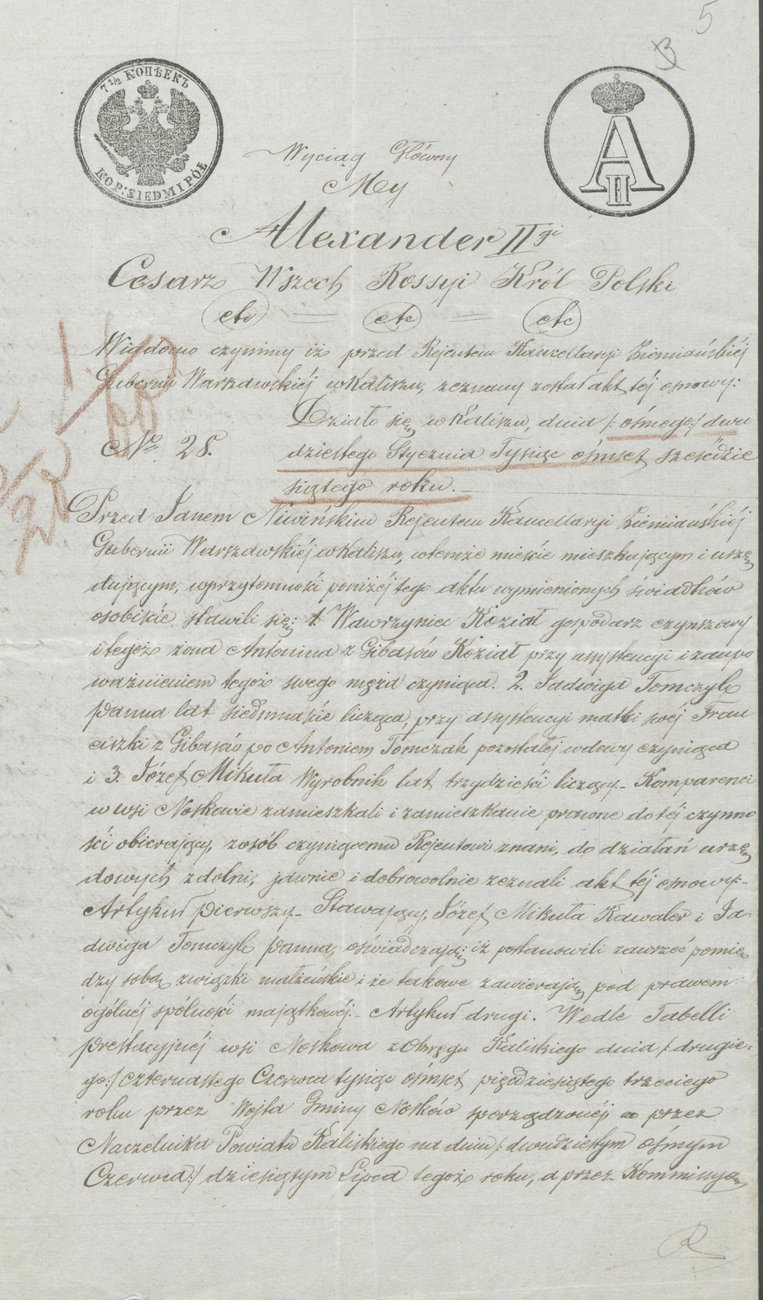 5
3
7½ КОПѢЕКЪ
KOP: SIEDM I PÓŁ
A II
Wyciąg Główny
My
Alexander IIgi
Cesarz Wszech Rossyi Król Polski
etc = etc = etc
Wiadomo czynimy iż przed Rejentem Kancellaryi Ziemiańskiéj
Gubernii Warszawskiéj w Kaliszu, zeznany został akt téj osnowy:
Działo się w Kaliszu, dnia /: ósmego :/ dwu
No 28. dziestego Stycznia Tysiąc ośmset sześćdzie
siątego roku.—
Przed Janem Niwińskim Rejentem Kancellaryi Ziemiańskiéj
Gubernii Warszawskiéj w Kaliszu, w temże mieście mieszkającym i urzę
dującym, w przytomności poniżéj tego aktu wymienionych świadków
osobiście stawili się: 1. Wawrzyniec Koział gospodarz czynszowy
i tegoż żona Antonina z Gibasów Koział przy assystencyi i zaupo
ważnieniem tegoż swego męża czyniąca. 2. Jadwiga Tomczyk
panna lat siedmnaście licząca, przy assystencyi matki swéj Fran
ciszki z Gibasów po Antonim Tomczak pozostałéj wdowy czyniąca
i 3. Józef Mikuła Wyrobnik lat trzydzieści liczący — Komparenci
w wsi Noskowie zamieszkali i zamieszkanie prawne do téj czynno
ści obierający, z osób czyniącemu Rejentowi znani, do działań urzę
dowych zdolni, jawnie i dobrowolnie zeznali akt téj osnowy:—
Artykuł pierwszy— Stawający, Józef Mikuła Kawaler i Ja
dwiga Tomczyk panna, oświadczają: iż postanowili zawrzeć pomię
dzy sobą związki małżeńskie i że takowe zawierają pod prawem
ogólnéj spólności majątkowéj.— Artykuł drugi. Wedle Tabelli
prestacyjnéj wsi Noskowa z Okręgu Kaliskiego dnia /: drugie-
go :/ czternastego Czerwca tysiąc ośmset pięćdziesiątego trzeciego
roku przez Wójta Gminy Nosków sporządzonéj a przez
Naczelnika Powiatu Kaliskiego na dniu /: dwudziestym ósmym
Czerwca :/ dziesiątym Lipca tegoż roku, a przez Kommissyą